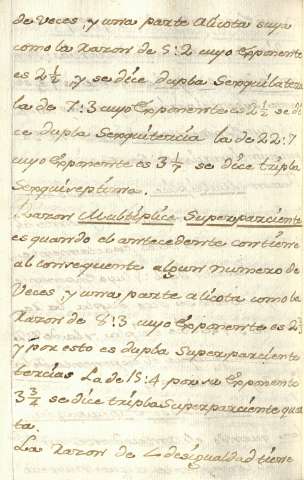 de veces, y una parte Alicota suya
como la Razon de 5:2 cuyo Exponente
es 2 1/2 y se dice dupla Sexquilatera
la de 7:3 cuyo Exponente es 2 1/2 se di
ce dupla Sexquitercia la de 22:7
cuyo Exponente es 3 1/7 se dice tripla
Sexquiseptima.
Razon Multiplice Superparciente
es quando el antecedente contiene
al consequente algun numero de
Veces, y una parte alicota como la
Razon de 8:3 cuyo Exponente es 2
y por esto es dupla Superparciente
tercias La de 15:4 por su Exponente
3 3/4 se dice tripla Superparciente qua
ta.
La Razon de desigualdad tiene